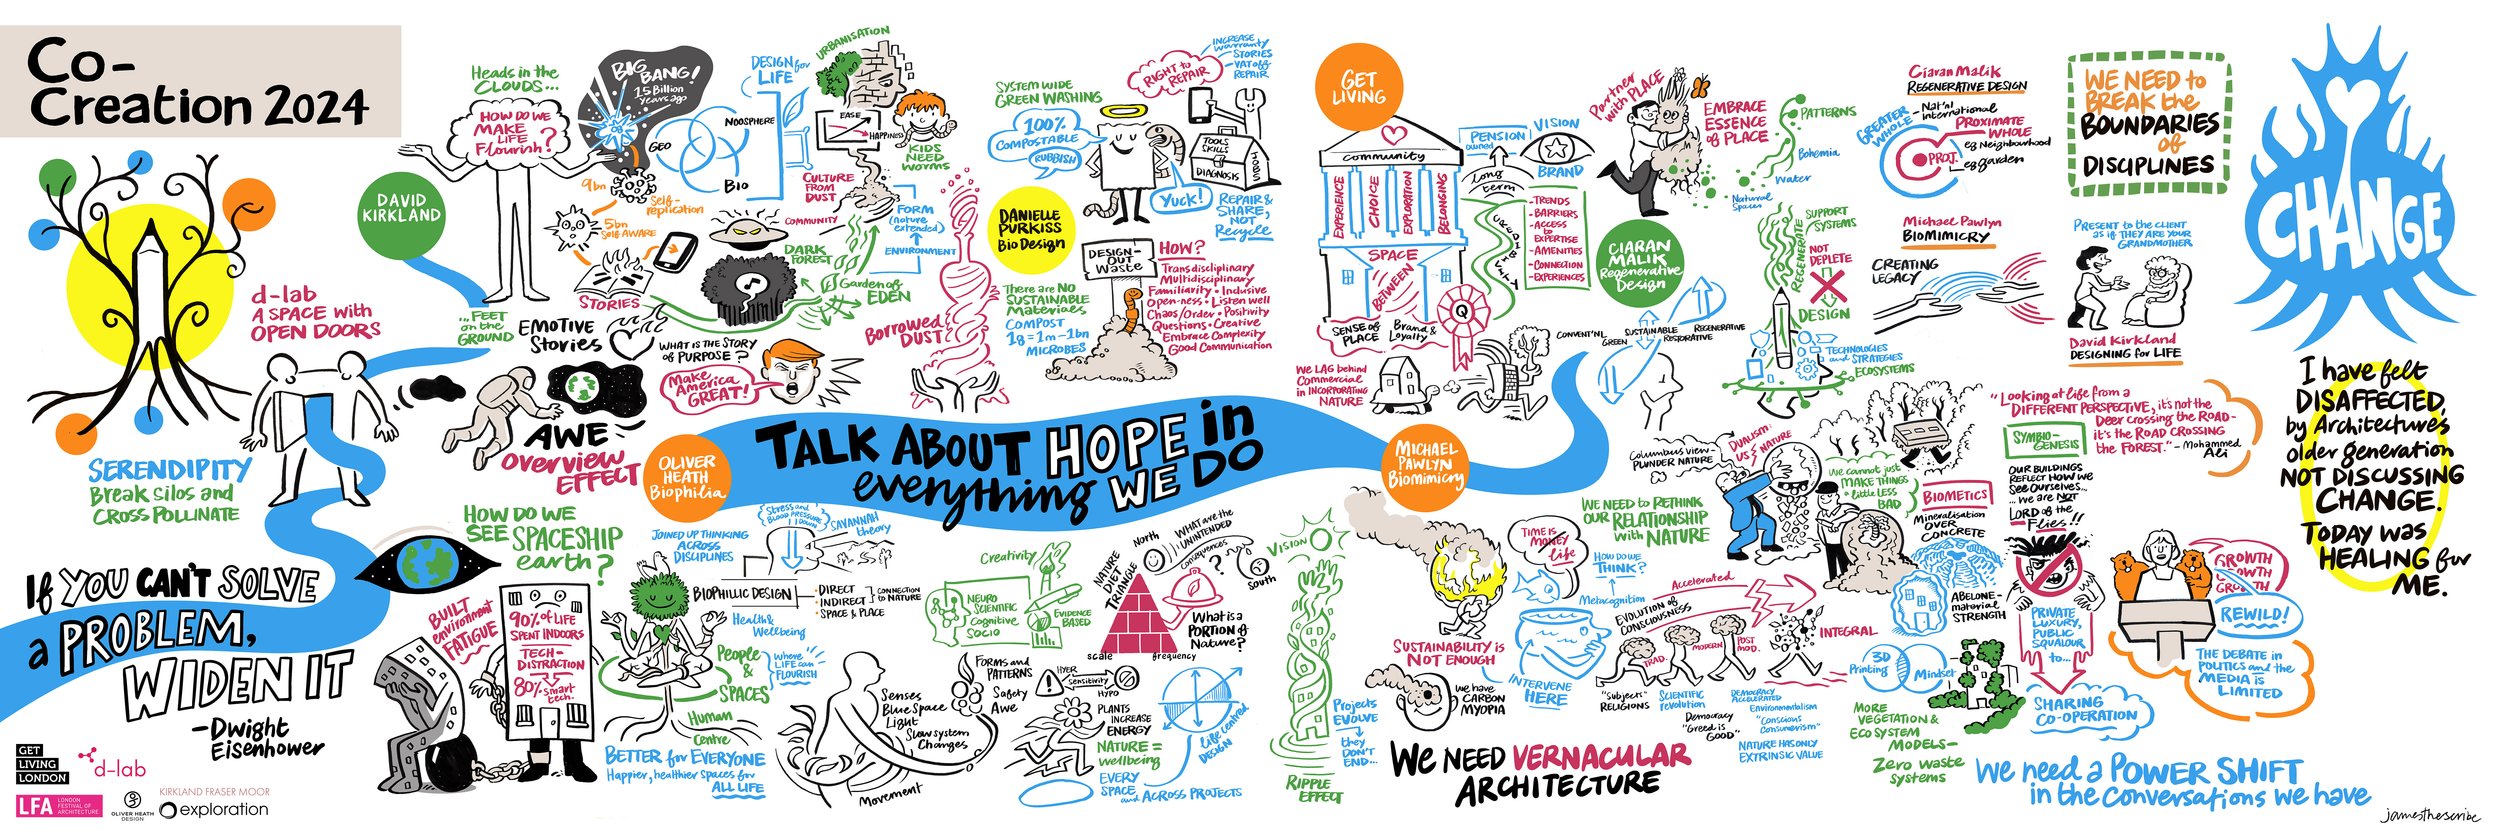 Co-
Creation 2024
d-lab
A SPACE with
OPEN DOORS
SERENDIPITY
Break silos and
CROSS POLLINATE
If YOU CAN'T SOLVE
a PROBLEM,
WIDEN IT
-Dwight
Eisenhower
GET
LIVING
LONDON
d-lab
LFA
LONDON
FESTIVAL OF
ARCHITECTURE
OLIVER HEATH
DESIGN
KIRKLAND FRASER MOOR
exploration
DAVID
KIRKLAND
Heads in the
CLOUDS...
HOW DO WE
MAKE
LIFE
Flourish?
...FEET
on the
GROUND
BIG
BANG!
15 Billion
Years ago
9bn
Self-
replication
5bn
Self AWARE
STORIES
EMOTIVE
Stories
WHAT IS THE STORY
of PURPOSE?
Make
America
GREAT!
AWE
overview
EFFECT
GEO
NOOSPHERE
BIO
DESIGN for
LIFE
URBANISATION
EASE
HAPPINESS
KIDS
NEED
WORMS
CULTURE
FROM
DUST
COMMUNITY
FORM
(nature
extended)
ENVIRONMENT
DARK
FOREST
Garden of
EDEN
Borrowed
DUST
DANIELLE
PURKISS
Bio Design
SYSTEM WIDE
GREEN WASHING
100%
COMPOSTABLE
RUBBISH
Yuck!
RIGHT to
REPAIR
INCREASE
warranty
STORIES
- VAT off
REPAIR
TOOLS
SKILLS
DIAGNOSIS
JOBS
REPAIR &
SHARE,
NOT
Recycle
DESIGN-
OUT
Waste
HOW?
Transdisciplinary
Multidisciplinary
Familiarity • Inclusive
Open-ness • Listen well
Chaos/Order • Positivity
Questions • Creative
Embrace Complexity
Good Communication
There are NO
SUSTAINABLE
Materials
COMPOST
1g = 1m - 1bn
MICROBES
TALK ABOUT HOPE in
everything WE DO
GET
LIVING
community
EXPERIENCE
CHOICE
EXPLORATION
BELONGING
SPACE
BETWEEN
SENSE of
PLACE
Brand &
Loyalty
Q
PENSION
owned
VISION
BRAND
Long
term
- TRENDS
- BARRIERS
- ACCESS
to
EXPERTISE
- AMENITIES
- CONNECTION
- EXPERIENCES
We LAG behind
Commercial
in INCORPORATING
NATURE
CIARAN
MALIK
Regenerative
Design
Partner
with PLACE
EMBRACE
ESSENCE
of PLACE
PATTERNS
Bohemia
Water
Natural
Spaces
CONVENT'NL
GREEN
SUSTAINABLE
RESTORATIVE
REGENERATIVE
REGENERATE
SUPPORT
SYSTEMS
NOT
DEPLETE
DESIGN
TECHNOLOGIES
and STRATEGIES
ECOSYSTEMS
Ciaran Malik
REGENERATIVE DESIGN
GREATER
WHOLE
- Nat'nl
- international
PROXIMATE
WHOLE
eg Neighbourhood
PROJ.
eg garden
Michael Pawlyn
BIOMIMICRY
CREATING
LEGACY
WE NEED to
BREAK the
BOUNDARIES
of
DISCIPLINES
PRESENT to the CLIENT
as if THEY ARE YOUR
GRANDMOTHER
David Kirkland
DESIGNING for LIFE
CHANGE
I have felt
DISAFFECTED
by Architecture's
older generation
NOT DISCUSSING
CHANGE.
TODAY WAS
HEALING for
ME.
OLIVER
HEATH
Biophilia
HOW DO WE
SEE SPACESHIP
earth?
BUILT
environment
FATIGUE
90% of LIFE
SPENT INDOORS
TECH-
DISTRACTION
80% smart
tech.
JOINED UP THINKING
ACROSS
DISCIPLINES
Stress and
BLOOD PRESSURE
DOWN
SAVANNAH
theory
BIOPHILIC DESIGN
• DIRECT
• INDIRECT
• SPACE & PLACE
CONNECTION
to NATURE
Health &
Wellbeing
People
&
SPACES
where
LIFE can
FLOURISH
Human
Centre
BETTER for EVERYONE
Happier, healthier spaces for
ALL LIFE
Creativity
NEURO
Scientific
Cognitive
SOCIO
EVIDENCE
BASED
Senses
Blue Space
Light
Slow system
Changes
Movement
FORMS and
PATTERNS
Safety
Awe
HYPER
Sensitivity
HYPO
PLANTS
INCREASE
ENERGY
NATURE =
Wellbeing
EVERY
SPACE
and ACROSS PROJECTS
Life Centred
DESIGN
NATURE DIET
TRIANGLE
scale
frequency
North
South
WHAT are the
UNINTENDED
consequences
?
What is a
PORTION of
Nature?
VISION
Projects
EVOLVE
they
DON'T
END...
RIPPLE
EFFECT
MICHAEL
PAWLYN
Biomimicry
SUSTAINABILITY is
NOT ENOUGH
We have
CARBON
MYOPIA
TIME is
MONEY
life
HOW DO WE
THINK?
Metacognition
INTERVENE
HERE
WE NEED VERNACULAR
ARCHITECTURE
WE NEED to RETHINK
OUR RELATIONSHIP
with NATURE
Columbus view -
PLUNDER NATURE
DUALISM:
US & NATURE
We cannot just
MAKE THINGS
a little LESS
BAD
Accelerated
EVOLUTION of
CONSCIOUSNESS
TRAD.
MODERN
POST
MOD.
INTEGRAL
"Subjects"
RELIGIONS
Scientific
revolution
Democracy
"Greed is
GOOD"
DEMOCRACY
ACCELERATED
Environmentalism
"Conscious
Consumerism"
NATURE HAS ONLY
EXTRINSIC VALUE
BIOMETICS
Mineralisation
OVER
CONCRETE
ABELONE -
material
STRENGTH
3D
Printing
Mindset
MORE
VEGETATION &
ECO SYSTEM
MODELS -
Zero Waste
Systems
"Looking at life from a
DIFFERENT PERSPECTIVE, it's not the
Deer crossing the ROAD -
it's the ROAD CROSSING
the FOREST." - Mohammed
Ali
SYMBIO-
GENESIS
OUR BUILDINGS
REFLECT HOW WE
See Ourselves...
... we are NOT
LORD of the
Flies!!
PRIVATE
LUXURY,
PUBLIC
SQUALOUR
to...
SHARING
CO-OPERATION
GROWTH
GROWTH
GROWTH
REWILD!
THE DEBATE in
POLITICS and the
MEDIA is
LIMITED
We need a POWER SHIFT
in the Conversations we have
jamesthescribe